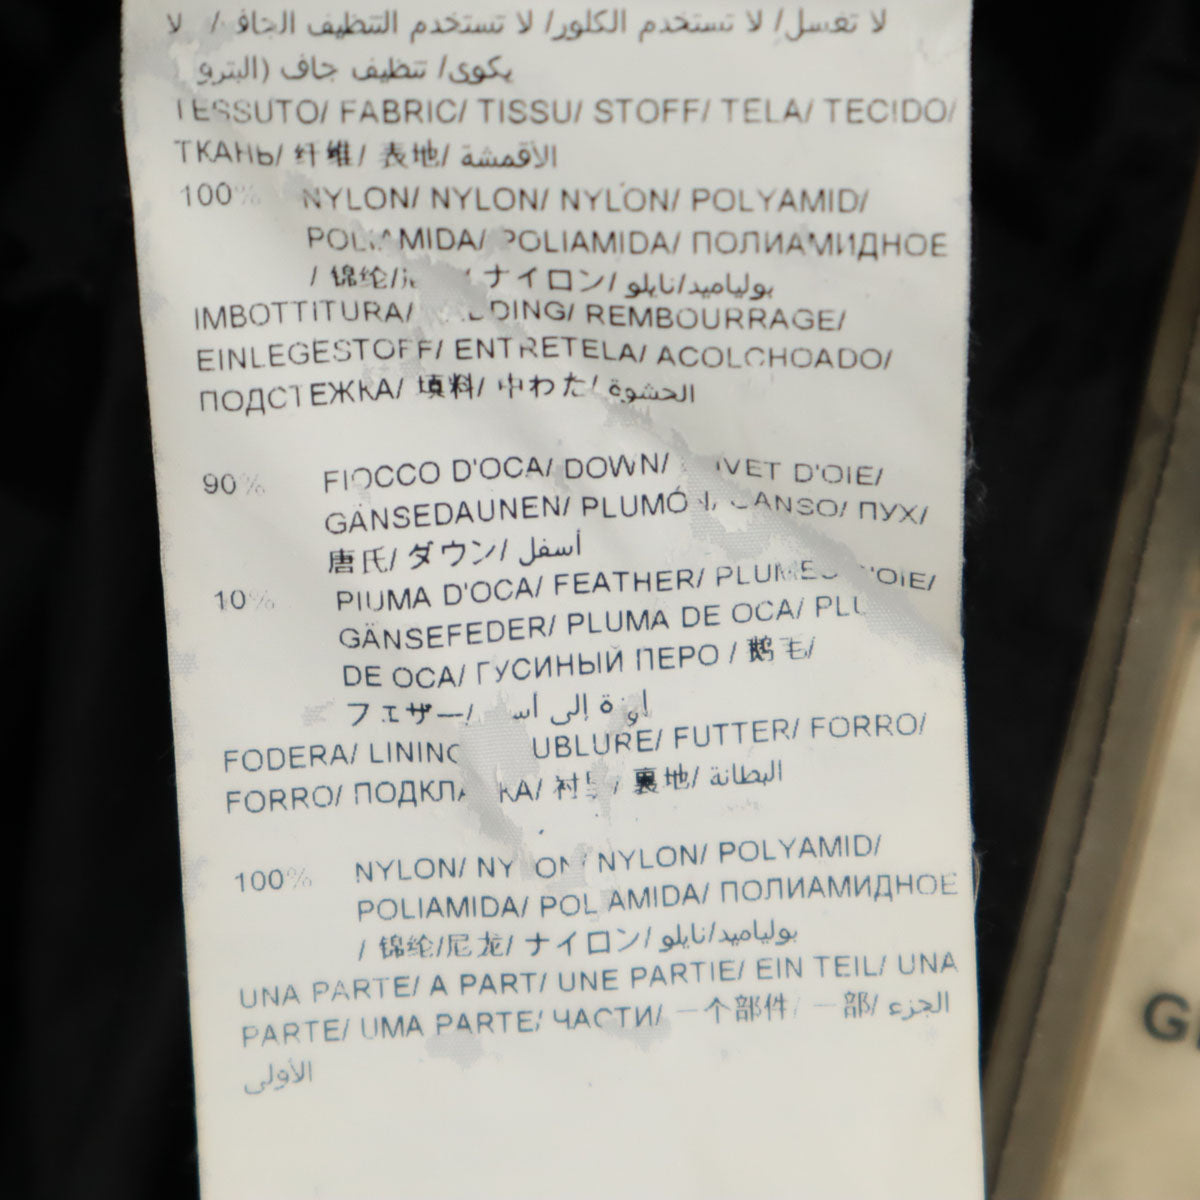 لا تغسل/ لا تستخدم الكلور/ لا تستخدم التنظيف الجاف / لا
يكوى/ تنظيف جاف (البترو
TESSUTO/ FABRIC/ TISSU/ STOFF/ TELA/ TECIDO/
ТКАНЬ/ 纤维/ 表地/ الأقمشة
100% NYLON/ NYLON/ NYLON/ POLYAMID/
POLIAMIDA/ POLIAMIDA/ ПОЛИАМИДНОЕ
/ 锦纶/ / ナイロン/ بولياميد/نايلو
IMBOTTITURA/ REMBOURRAGE/
EINLEGESTOFF/ ENTRETELA/ ACOLCHOADO/
ПОДСТЕЖКА/ 填料/ 中わた/ الحشوة
90% FIOCCO D'OCA/ DOWN/ D'OIE/
GÄNSEDAUNEN/ PLUMÓN/ GANSO/ ПУХ/
唐氏/ ダウン/ أسفل
10% PIUMA D'OCA/ FEATHER/ PLUMES D'OIE/
GÄNSEFEDER/ PLUMA DE OCA/
DE OCA/ ГУСИНЫЙ ПЕРО / 鹅毛/
フェザー/ إلى
FODERA/ LINING FUTTER/ FORRO/
FORRO/ ПОДКЛАДКА/ / 裏地/ البطانة
100% NYLON/ NYLON/ NYLON/ POLYAMID/
POLIAMIDA/ POLIAMIDA/ ПОЛИАМИДНОЕ
/ 锦纶/尼龙/ ナイロン/ بولياميد/نايلو
UNA PARTE/ A PART/ UNE PARTIE/ EIN TEIL/ UNA
PARTE/ UMA PARTE/ ЧАСТИ/ 一个部件/ 一部/ الجزء
الأولى
G